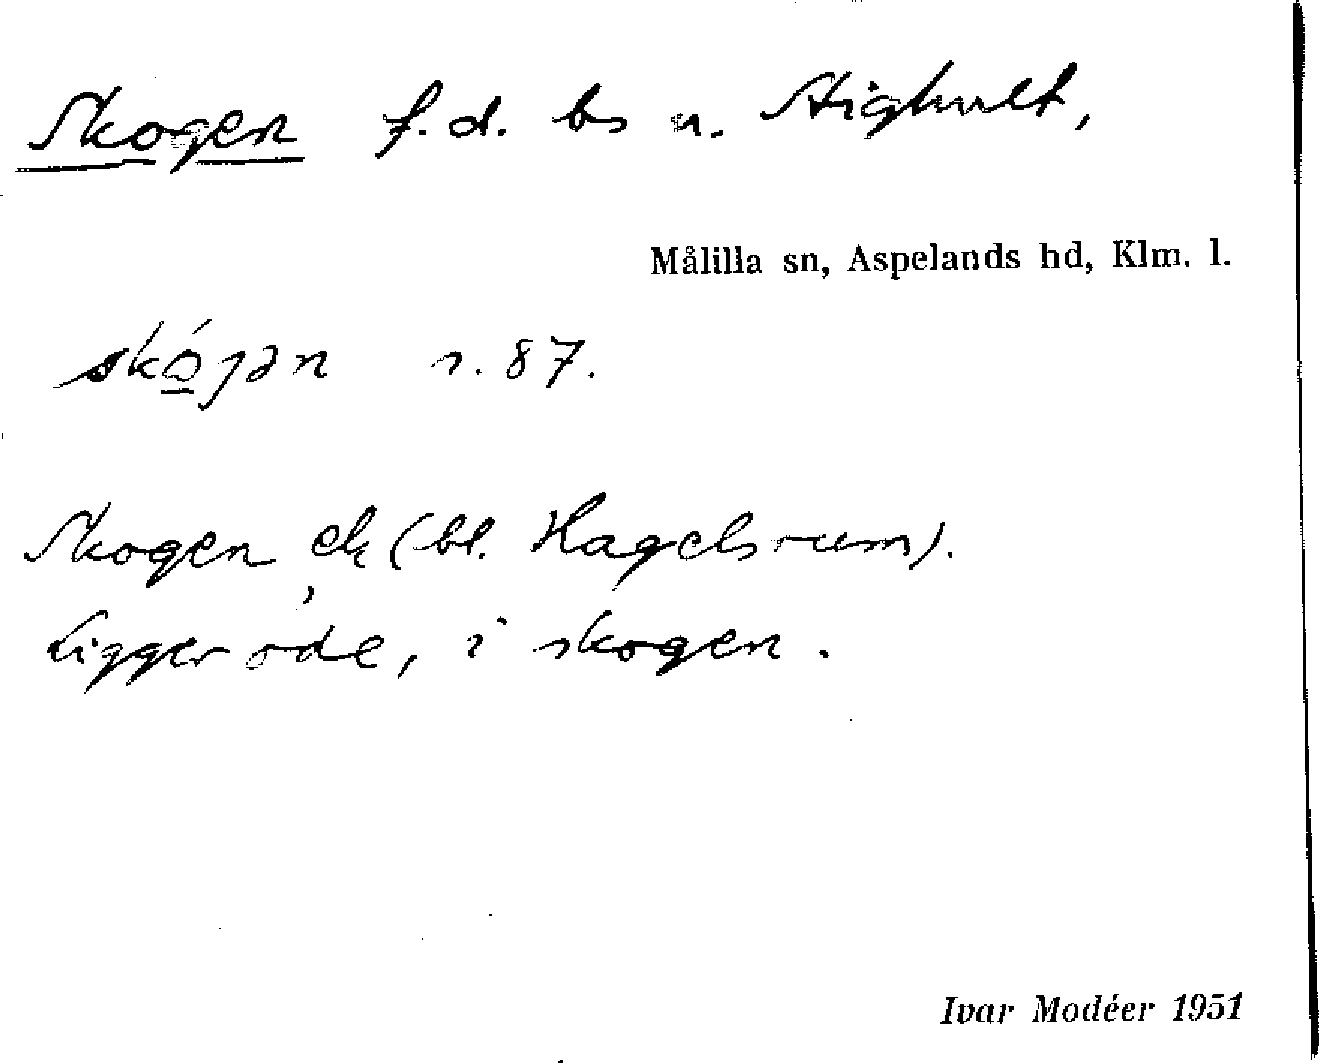 Skogen f.d. bs u. Stighult,
Målilla sn, Aspelands hd, Klm. l.
skó̲ȷən s. 87.
Skogen, ek (bl. Hagelsrum).
Ligger öde, i skogen.
Ivar Modéer 1951